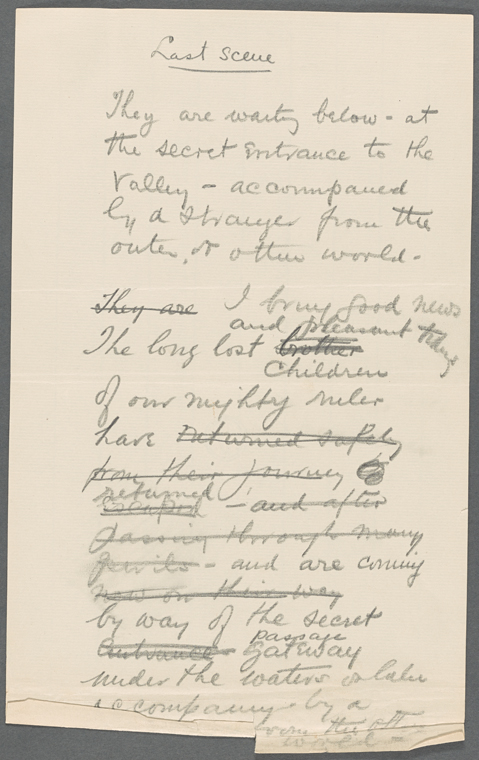 Last scene
They are waiting below - at
the secret Entrance to the
Valley - accompanied
by a stranger from the
outer, or other world -
They are I bring good news
and pleasant tidings
The long lost brother
Children
of our mighty ruler
have returned safely
from their journey
returned
Escaped - and after
passing through many
perils - and are coming
now on their way
by way of the secret
passage
Entrance - Gateway
under the waters or lake
accompany - by a
from the
world -